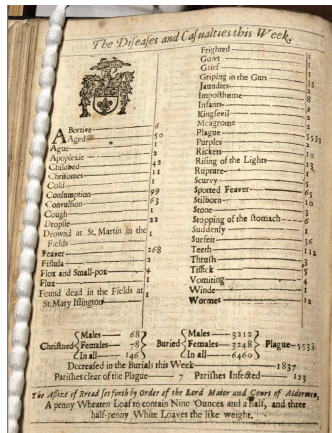 The Diseases and Casualties this Week.
Abortive 6
Aged 50
Ague 1
Apoplexie 2
Childbed 42
Chrisomes 11
Cold 1
Consumption 99
Convulsion 63
Cough 1
Dropsie 22
Drowned at St. Martin in the Fields 1
Feaver 268
Fistula 2
Flox and Small-pox 4
Flux 1
Found dead in the Fields at St. Mary Islington 1
Frighted 1
Gowt 1
Grief 3
Griping in the Guts 35
Jaundies
Imposthume 8
Infants
Kingsevil
Meagrome
Plague 5533
Purples 2
Rickets
Rising of the Lights 13
Rupture 1
Scurvy
Spotted Feaver 65
Stilborn
Stone
Stopping of the stomach 6
Suddenly 1
Surfeit 36
Teeth 112
Thrush 3
Tissick 5
Vomiting 4
Winde 1
Wormes 12
Christned Males 68 Females 78 In all 146
Buried Males 3212 Females 3248 In all 6460
Plague 5533
Decreased in the Burials this Week 1837
Parishes clear of the Plague Parishes Infected 123
The Assize of Bread set forth by Order of the Lord Maior and Court of Aldermen,
A penny Wheaten Loaf to contain Nine Ounces and a half, and three
half-penny White Loaves the like weight.